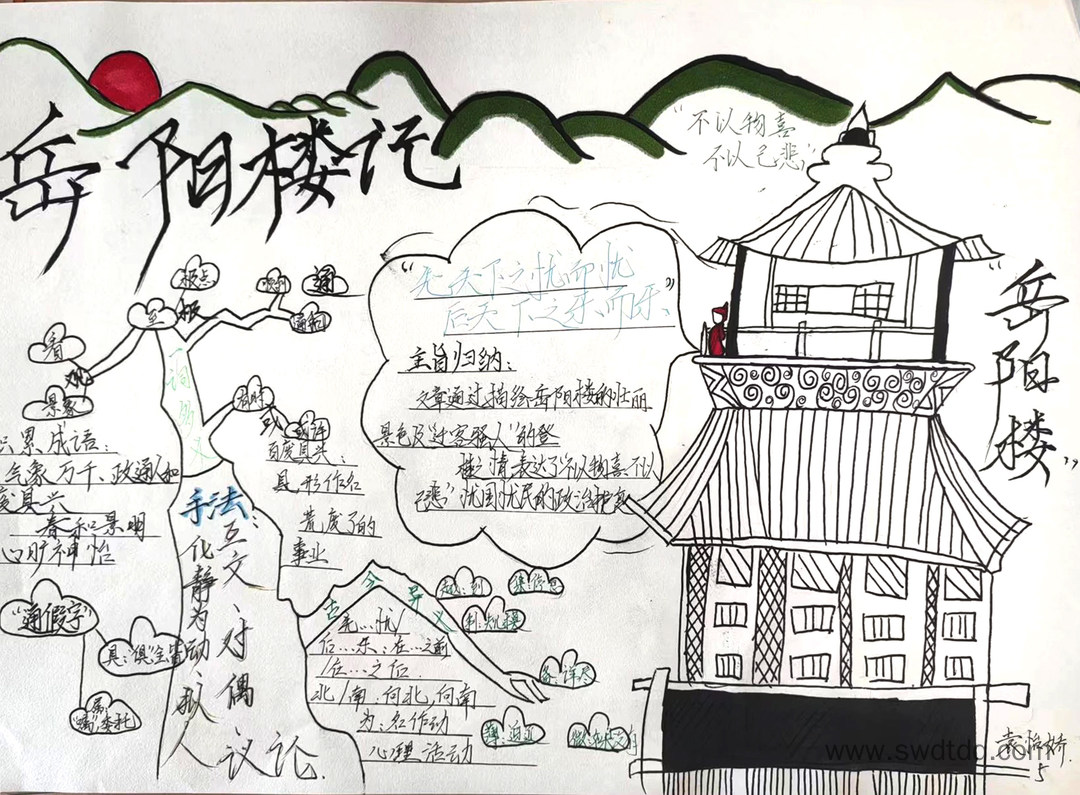 岳阳楼记
“不以物喜
不以己悲”
“先天下之忧而忧
后天下之乐而乐”
主旨归纳：
文章通过描绘岳阳楼的壮丽
景色及“迁客骚人”的登
楼之情表达了“不以物喜不以
己悲”忧国忧民的政治抱负
“岳阳楼”
一词多义
极
至
极点
通
观
看
景象
或
或许
累成语：
气象万千、政通人和
具兴
春和景明
心旷神怡
百废具兴：
具，形作名
荒废了的
事业
手法：
互文、对偶
化静为动、拟人
议论.
“通假字”
具：“俱”全皆
属：
“嘱”委托
古今异义
先…忧/
后…乐：在…之前
/在…之后
北/南：向北，向南
为：名作动
心理活动
越：到
备：详尽
薄：迫近
www.swdtdq.com
5